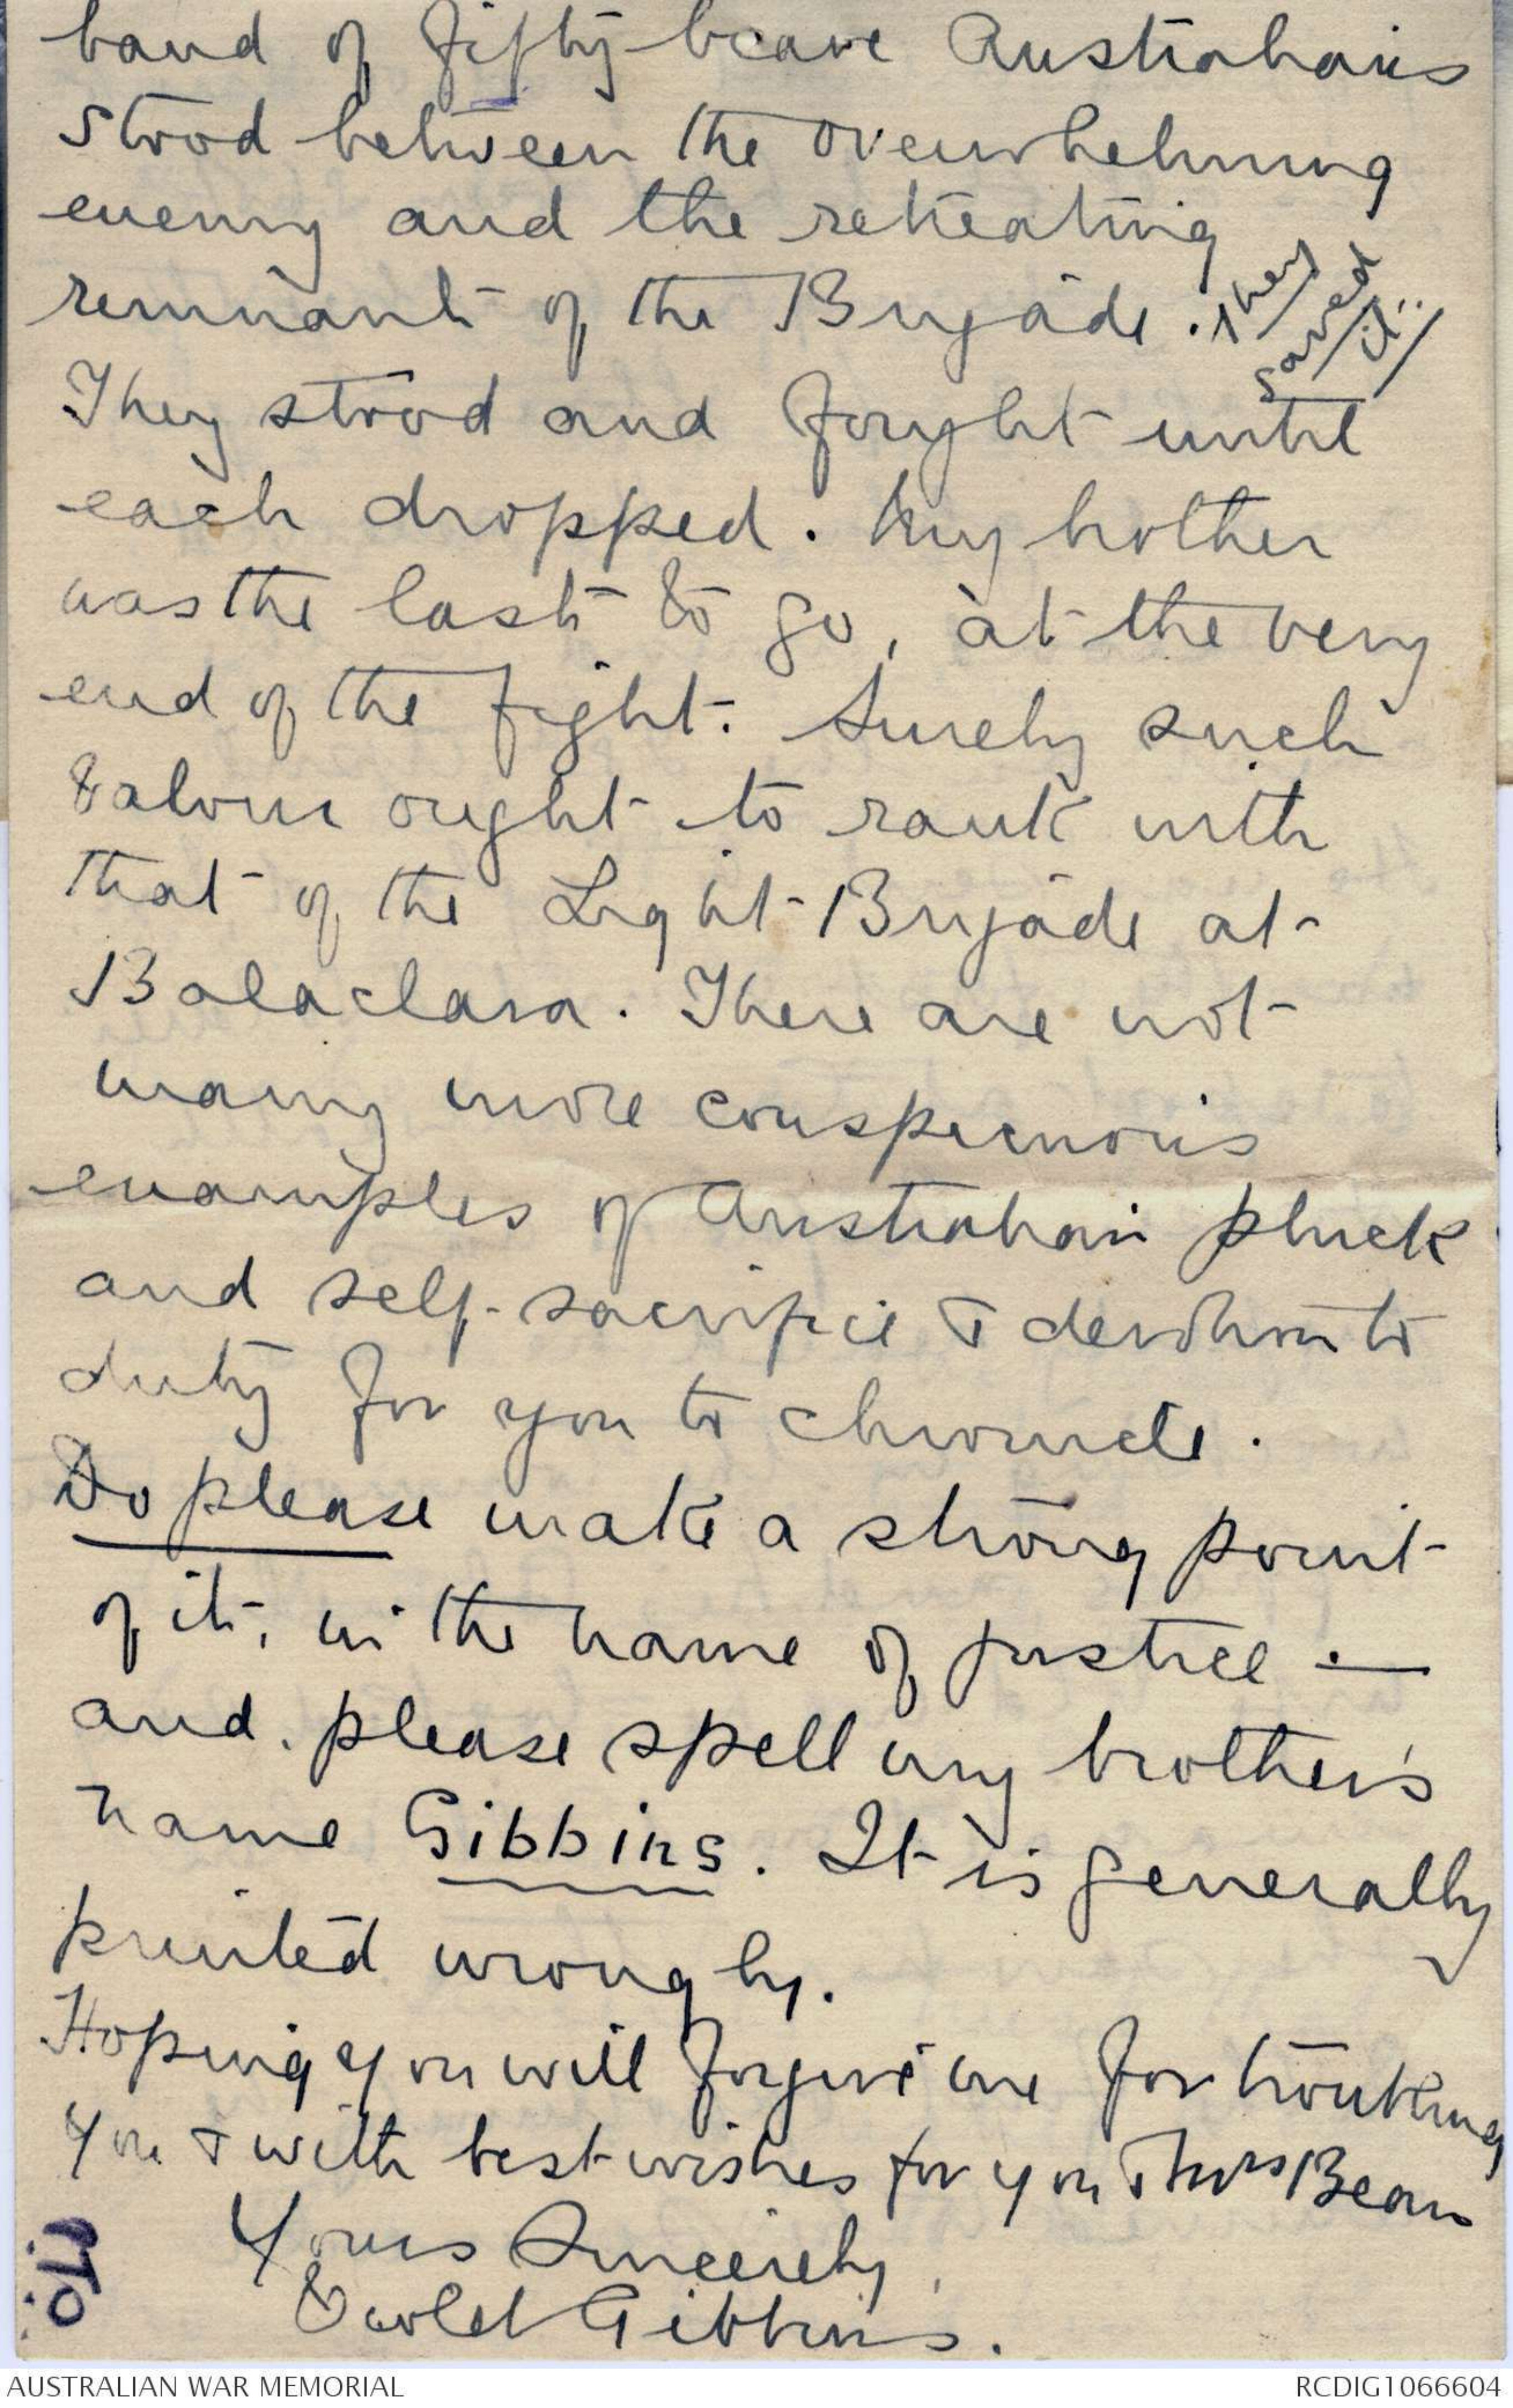 band of fifty brave Australians
stood between the overwhelming
enemy and the retreating
remnant of the Brigade. They
saved
it!!
They stood and fought until
each dropped. My brother
was the last to go, at the very
end of the fight. Surely such
valour ought to rank with
that of the Light Brigade at
Balaclava. There are not
many more conspicuous
examples of Australian pluck
and self-sacrifice & devotion to
duty for you to chronicle.
Do please make a strong point
of it, in the name of justice —
and, please spell my brother's
name Gibbins. It is generally
printed wrongly.
Hoping you will forgive me for troubling
you & with best wishes for you & Mrs Bean
Yours Sincerely,
Violet Gibbins.
PTO
AUSTRALIAN WAR MEMORIAL
RCDIG1066604